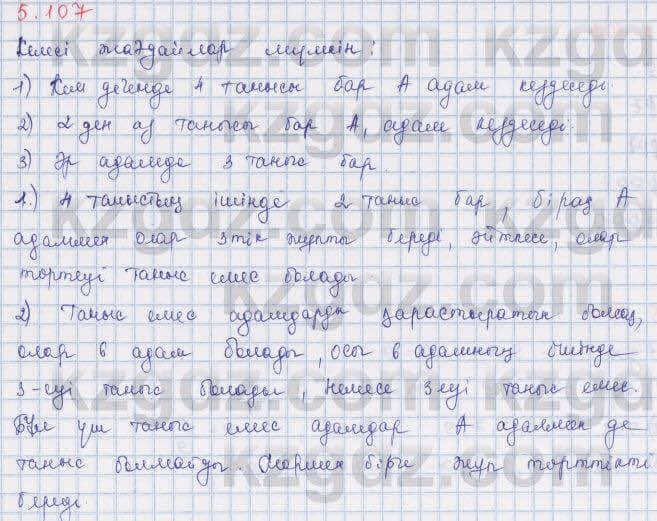 5.107
Келесі жағдайлар мүмкін:
1) Кем дегенде 4 танысы бар А адам кездеседі.
2) 2 ден аз танысы бар А, адам кездеседі.
3) Әр адамда 3 таныс бар.
1.) 4 таныстың ішінде 2 таныс бар, бірақ А
адаммен олар 3тік жұпты береді, әйтпесе, олар
төртеуі таныс емес болады.
2) Таныс емес адамдарды қарастыратын болсақ,
олар 6 адам болады, осы 6 адамның ішінде
3-еуі таныс болады, немесе 3еуі таныс емес.
Бұл үш таныс емес адамдар А адаммен де
таныс болмайды. Олармен бірге жұп төрттікті
береді.
kzgdz.com